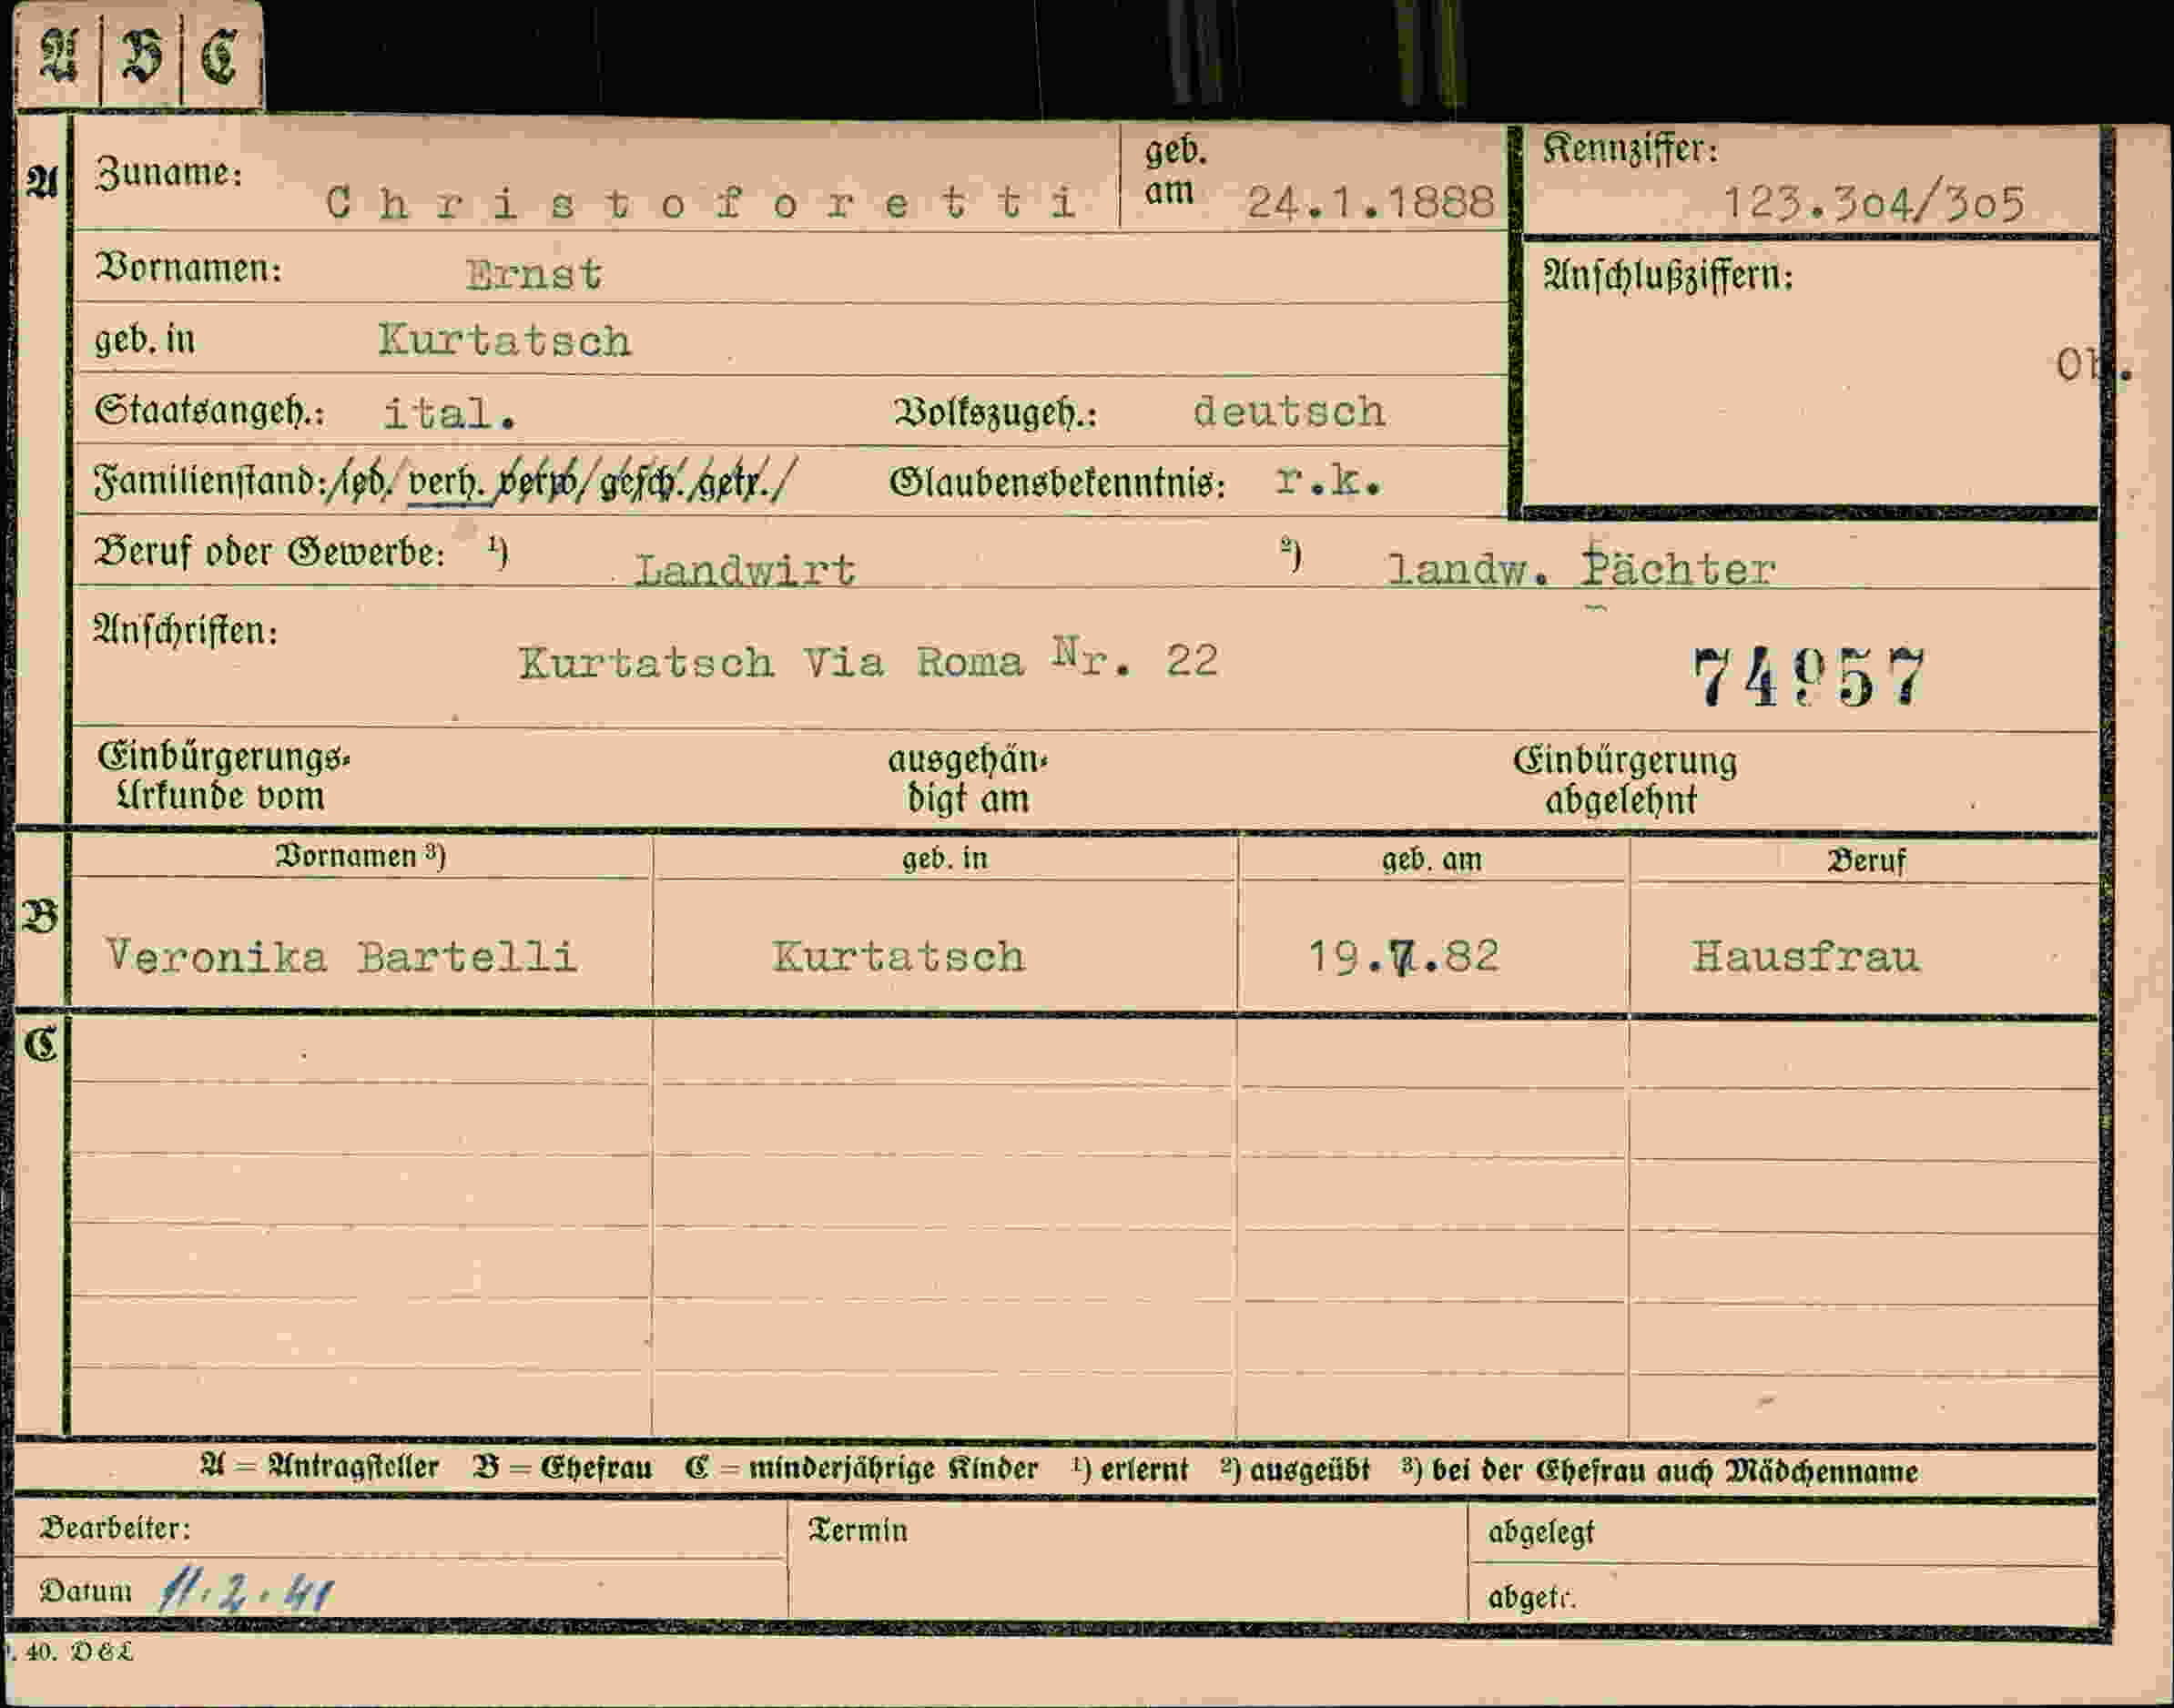 A B C
A Zuname: Christoforetti geb. am 24.1.1888 Kennziffer: 123.304/305
Vornamen: Ernst Anschlußziffern:
geb. in Kurtatsch
Staatsangeh.: ital. Volkszugeh.: deutsch
Familienstand: /led./ verh. verw/ gesch./getr./ Glaubensbekenntnis: r.k.
Beruf oder Gewerbe: ¹) Landwirt ²) landw. Pächter
Anschriften: Kurtatsch Via Roma Nr. 22 74957
Einbürgerungs- ausgehän- Einbürgerung
Urkunde vom digt am abgelehnt
Vornamen ³) geb. in geb. am Beruf
B Veronika Bartelli Kurtatsch 19.7.82 Hausfrau
C
A = Antragsteller B = Ehefrau C = minderjährige Kinder ¹) erlernt ²) ausgeübt ³) bei der Ehefrau auch Mädchenname
Bearbeiter: Termin abgelegt
Datum 11.2.41 abgetr.
40. D&L